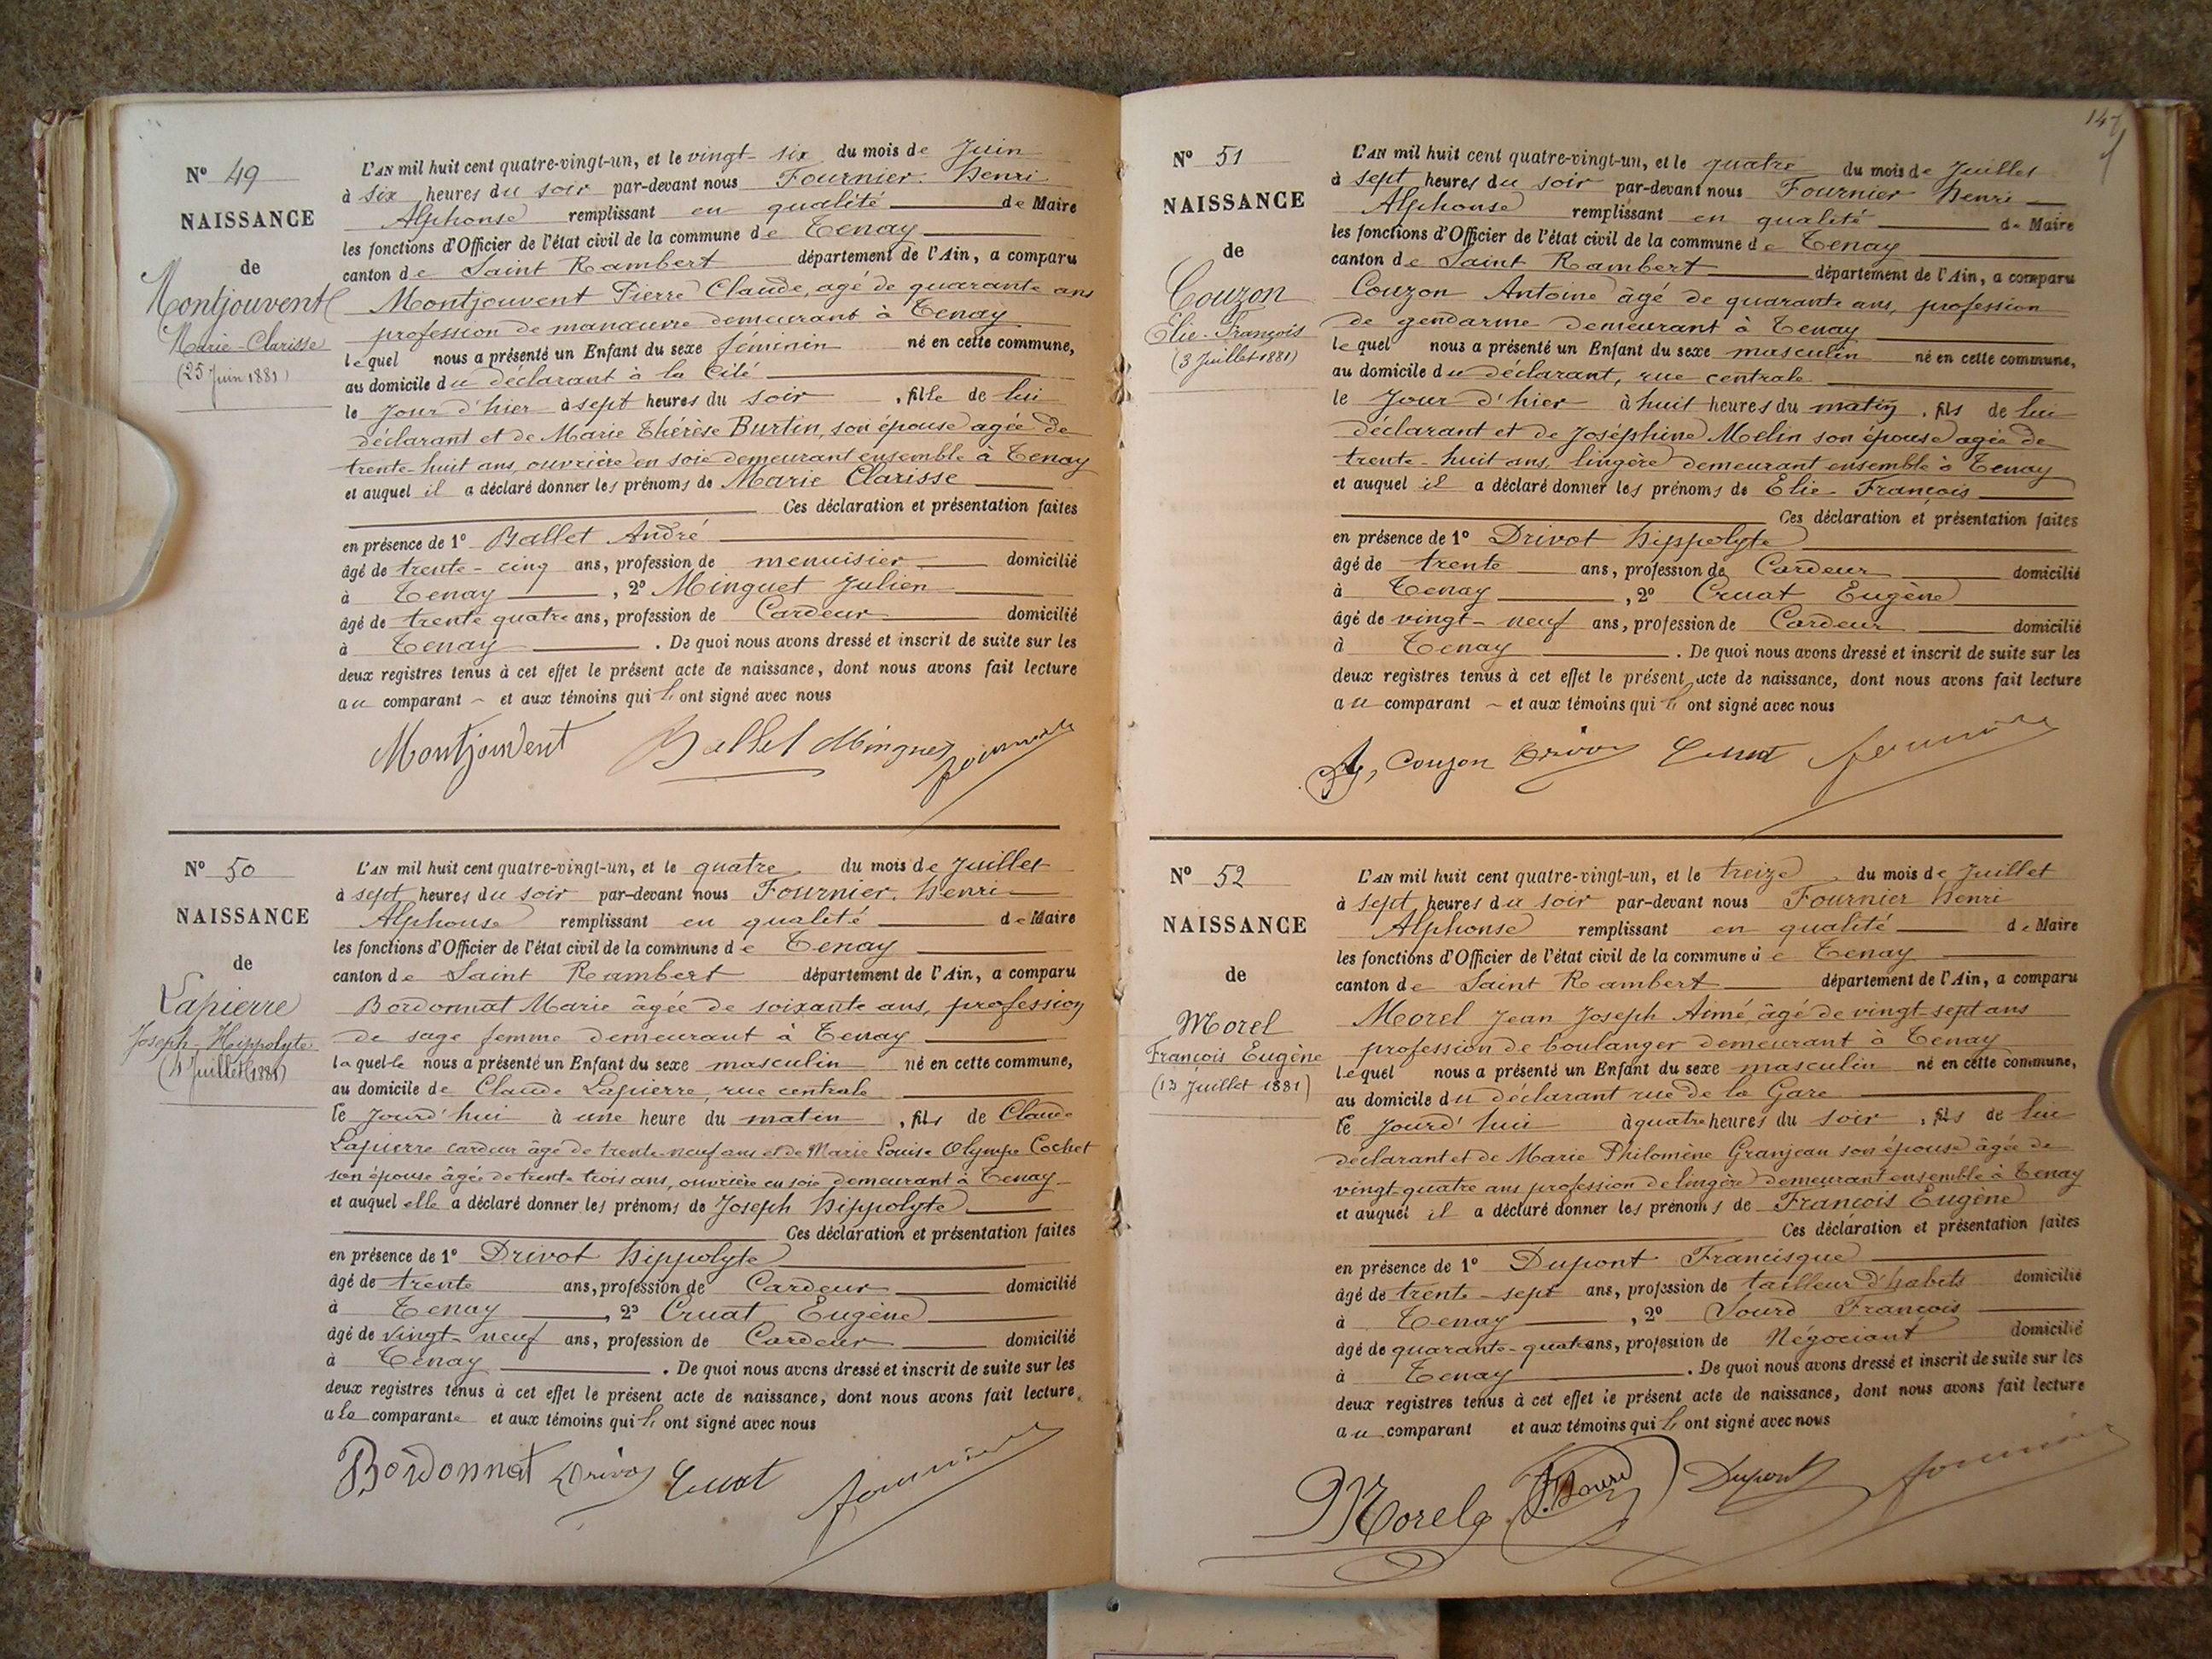 Nº 49
NAISSANCE
de
Montjouvent
Marie-Clarisse
(25 Juin 1881)
L'AN mil huit cent quatre-vingt-un, et le vingt-six du mois de Juin
à six heures du soir par-devant nous Fournier Henri
Alphonse remplissant en qualité de Maire
les fonctions d'Officier de l'état civil de la commune de Tenay
canton de Saint Rambert département de l'Ain, a comparu
Montjouvent Pierre Claude, agé de quarante ans
profession de manœuvre demeurant à Tenay
lequel nous a présenté un Enfant du sexe féminin né en cette commune,
au domicile du déclarant à la Cité
le Jour d'hier à sept heures du soir, fille de lui
déclarant et de Marie Thérèse Burtin, son épouse agée de
trente-huit ans, ouvrière en soie demeurant ensemble à Tenay
et auquel il a déclaré donner les prénoms de Marie Clarisse
Ces déclaration et présentation faites
en présence de 1º Ballet André
âgé de trente-cinq ans, profession de menuisier domicilié
à Tenay, 2º Minguet Julien
âgé de trente quatre ans, profession de Cardeur domicilié
à Tenay. De quoi nous avons dressé et inscrit de suite sur les
deux registres tenus à cet effet le présent acte de naissance, dont nous avons fait lecture
au comparant et aux témoins qui l' ont signé avec nous
Montjouvent Ballet Minguet Fournier
Nº 50
NAISSANCE
de
Lapierre
Joseph-Hippolyte
(4 Juillet 1881)
L'AN mil huit cent quatre-vingt-un, et le quatre du mois de Juillet
à sept heures du soir par-devant nous Fournier Henri
Alphonse remplissant en qualité de Maire
les fonctions d'Officier de l'état civil de la commune de Tenay
canton de Saint Rambert département de l'Ain, a comparu
Bordonnat Marie âgée de soixante ans, profession
de sage femme demeurant à Tenay
laquelle nous a présenté un Enfant du sexe masculin né en cette commune,
au domicile de Claude Lapierre, rue centrale
le Jourd'hui à une heure du matin, fils de Claude
Lapierre cardeur âgé de trente-neuf ans et de Marie Louise Olympe Cochet
son épouse âgée de trente trois ans, ouvrière en soie demeurant à Tenay
et auquel elle a déclaré donner les prénoms de Joseph Hippolyte
Ces déclaration et présentation faites
en présence de 1º Drivot Hippolyte
âgé de trente ans, profession de Cardeur domicilié
à Tenay, 2º Cruat Eugène
âgé de vingt-neuf ans, profession de Cardeur domicilié
à Tenay. De quoi nous avons dressé et inscrit de suite sur les
deux registres tenus à cet effet le présent acte de naissance, dont nous avons fait lecture
a la comparante et aux témoins qui l' ont signé avec nous
Bordonnat Drivot Cruat Fournier
147
Nº 51
NAISSANCE
de
Couzon
Elie-François
(3 Juillet 1881)
L'AN mil huit cent quatre-vingt-un, et le quatre du mois de Juillet
à sept heures du soir par-devant nous Fournier Henri
Alphonse remplissant en qualité de Maire
les fonctions d'Officier de l'état civil de la commune de Tenay
canton de Saint Rambert département de l'Ain, a comparu
Couzon Antoine âgé de quarante ans, profession
de gendarme demeurant à Tenay
lequel nous a présenté un Enfant du sexe masculin né en cette commune,
au domicile du déclarant, rue centrale
le Jour d'hier à huit heures du matin, fils de lui
déclarant et de Joséphine Melin son épouse agée de
trente-huit ans, lingère demeurant ensemble à Tenay
et auquel il a déclaré donner les prénoms de Elie-François
Ces déclaration et présentation faites
en présence de 1º Drivot Hippolyte
âgé de trente ans, profession de Cardeur domicilié
à Tenay, 2º Cruat Eugène
âgé de vingt-neuf ans, profession de Cardeur domicilié
à Tenay. De quoi nous avons dressé et inscrit de suite sur les
deux registres tenus à cet effet le présent acte de naissance, dont nous avons fait lecture
au comparant et aux témoins qui l' ont signé avec nous
Couzon Drivot Cruat Fournier
Nº 52
NAISSANCE
de
Morel
François Eugène
(13 Juillet 1881)
L'AN mil huit cent quatre-vingt-un, et le treize du mois de Juillet
à sept heures du soir par-devant nous Fournier Henri
Alphonse remplissant en qualité de Maire
les fonctions d'Officier de l'état civil de la commune de Tenay
canton de Saint Rambert département de l'Ain, a comparu
Morel Jean Joseph Aimé, âgé de vingt-sept ans
profession de boulanger demeurant à Tenay
lequel nous a présenté un Enfant du sexe masculin né en cette commune,
au domicile du déclarant rue de la Gare
le Jourd'hui à quatre heures du soir, fils de lui
déclarant et de Marie Philomène Granjean son épouse âgée de
vingt-quatre ans profession de lingère demeurant ensemble à Tenay
et auquel il a déclaré donner les prénoms de François Eugène
Ces déclaration et présentation faites
en présence de 1º Dupont Francisque
âgé de trente-sept ans, profession de tailleur d'habits domicilié
à Tenay, 2º Sourd François
âgé de quarante-quatre ans, profession de Négociant domicilié
à Tenay. De quoi nous avons dressé et inscrit de suite sur les
deux registres tenus à cet effet le présent acte de naissance, dont nous avons fait lecture
au comparant et aux témoins qui l' ont signé avec nous
Morel F. Sourd Dupont Fournier